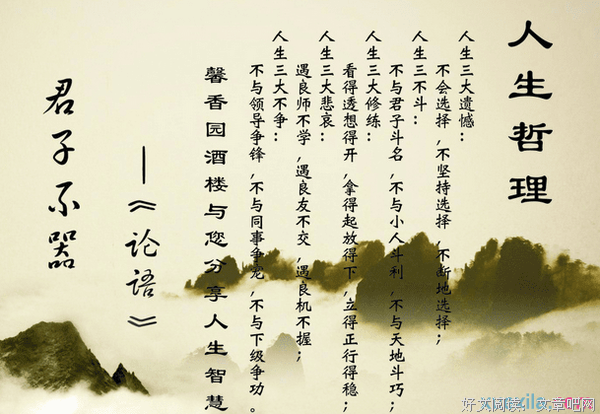 人生哲理
人生三大遗憾:
不会选择,不坚持选择,不断地选择;
人生三不斗:
不与君子斗名,不与小人斗利,不与天地斗巧;
人生三大修练:
看得透想得开,拿得起放得下,立得正行得稳;
人生三大悲哀:
遇良师不学,遇良友不交,遇良机不握;
人生三大不争:
不与领导争锋,不与同事争龙,不与下级争功。
馨香园酒楼与您分享人生智慧
——《论语》
君子不器
好文阅读，文章吧网